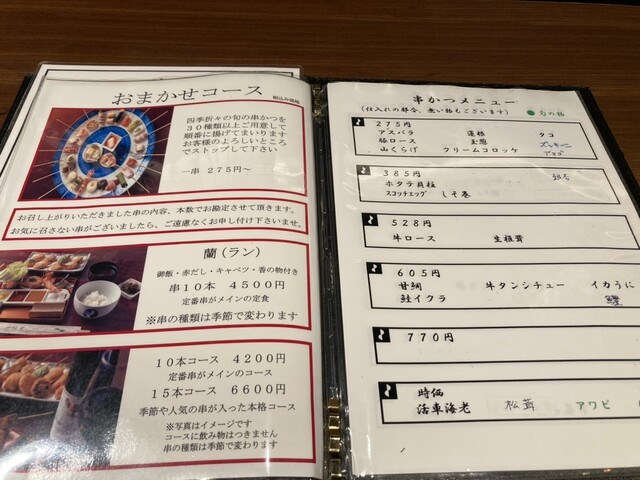 おまかせコース
税込み価格
四季折々の旬の串かつを
30種類以上ご用意して
順番に揚げてまいります
お客様のよろしいところ
でストップして下さい
一串 275円～
お召し上がりいただきました串の内容、本数でお勘定させて頂きます。
お気に召さない串がございましたら、ご遠慮なくお申し付け下さいませ。
蘭(ラン)
御飯・赤だし・キャベツ・香の物付き
串10本 4500円
定番串がメインの定食
※串の種類は季節で変わります
10本コース 4200円
定番串がメインのコース
15本コース 6600円
季節や人気の串が入った本格コース
※写真はイメージです
コースに飲み物はつきません
串の種類は季節で変わります
串かつメニュー
(仕入れの都合、無い物もございます)
275円
アスパラ 蓮根 タコ
豚ロース 玉葱 ズッキーニ
山くらげ クリームコロッケ
385円
ホタテ貝柱 銀杏
スコッチエッグ しそ巻
528円
牛ロース 生椎茸
605円
甘鯛 牛タンシチュー イカうに
鮭イクラ
770円
時価
活車海老 松茸 アワビ